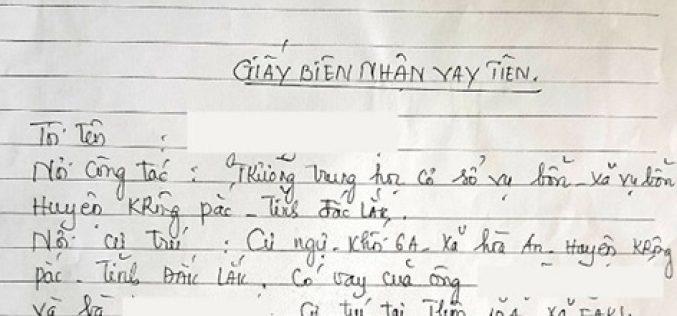 GIẤY BIÊN NHẬN VAY TIỀN.
Tôi tên :
Nơi công tác : Trường trung học cơ sở vụ bổn - xã vụ bổn
Huyện KRông pắc - Tỉnh Đắc Lắc,
Nơi cư trú : Cư ngụ - Khối 6A - Xã hòa An - Huyện KRông
pắc - Tỉnh ĐẮC LẮC. Có vay của ông
và bà Cư trú tại Thôn xã EAKL